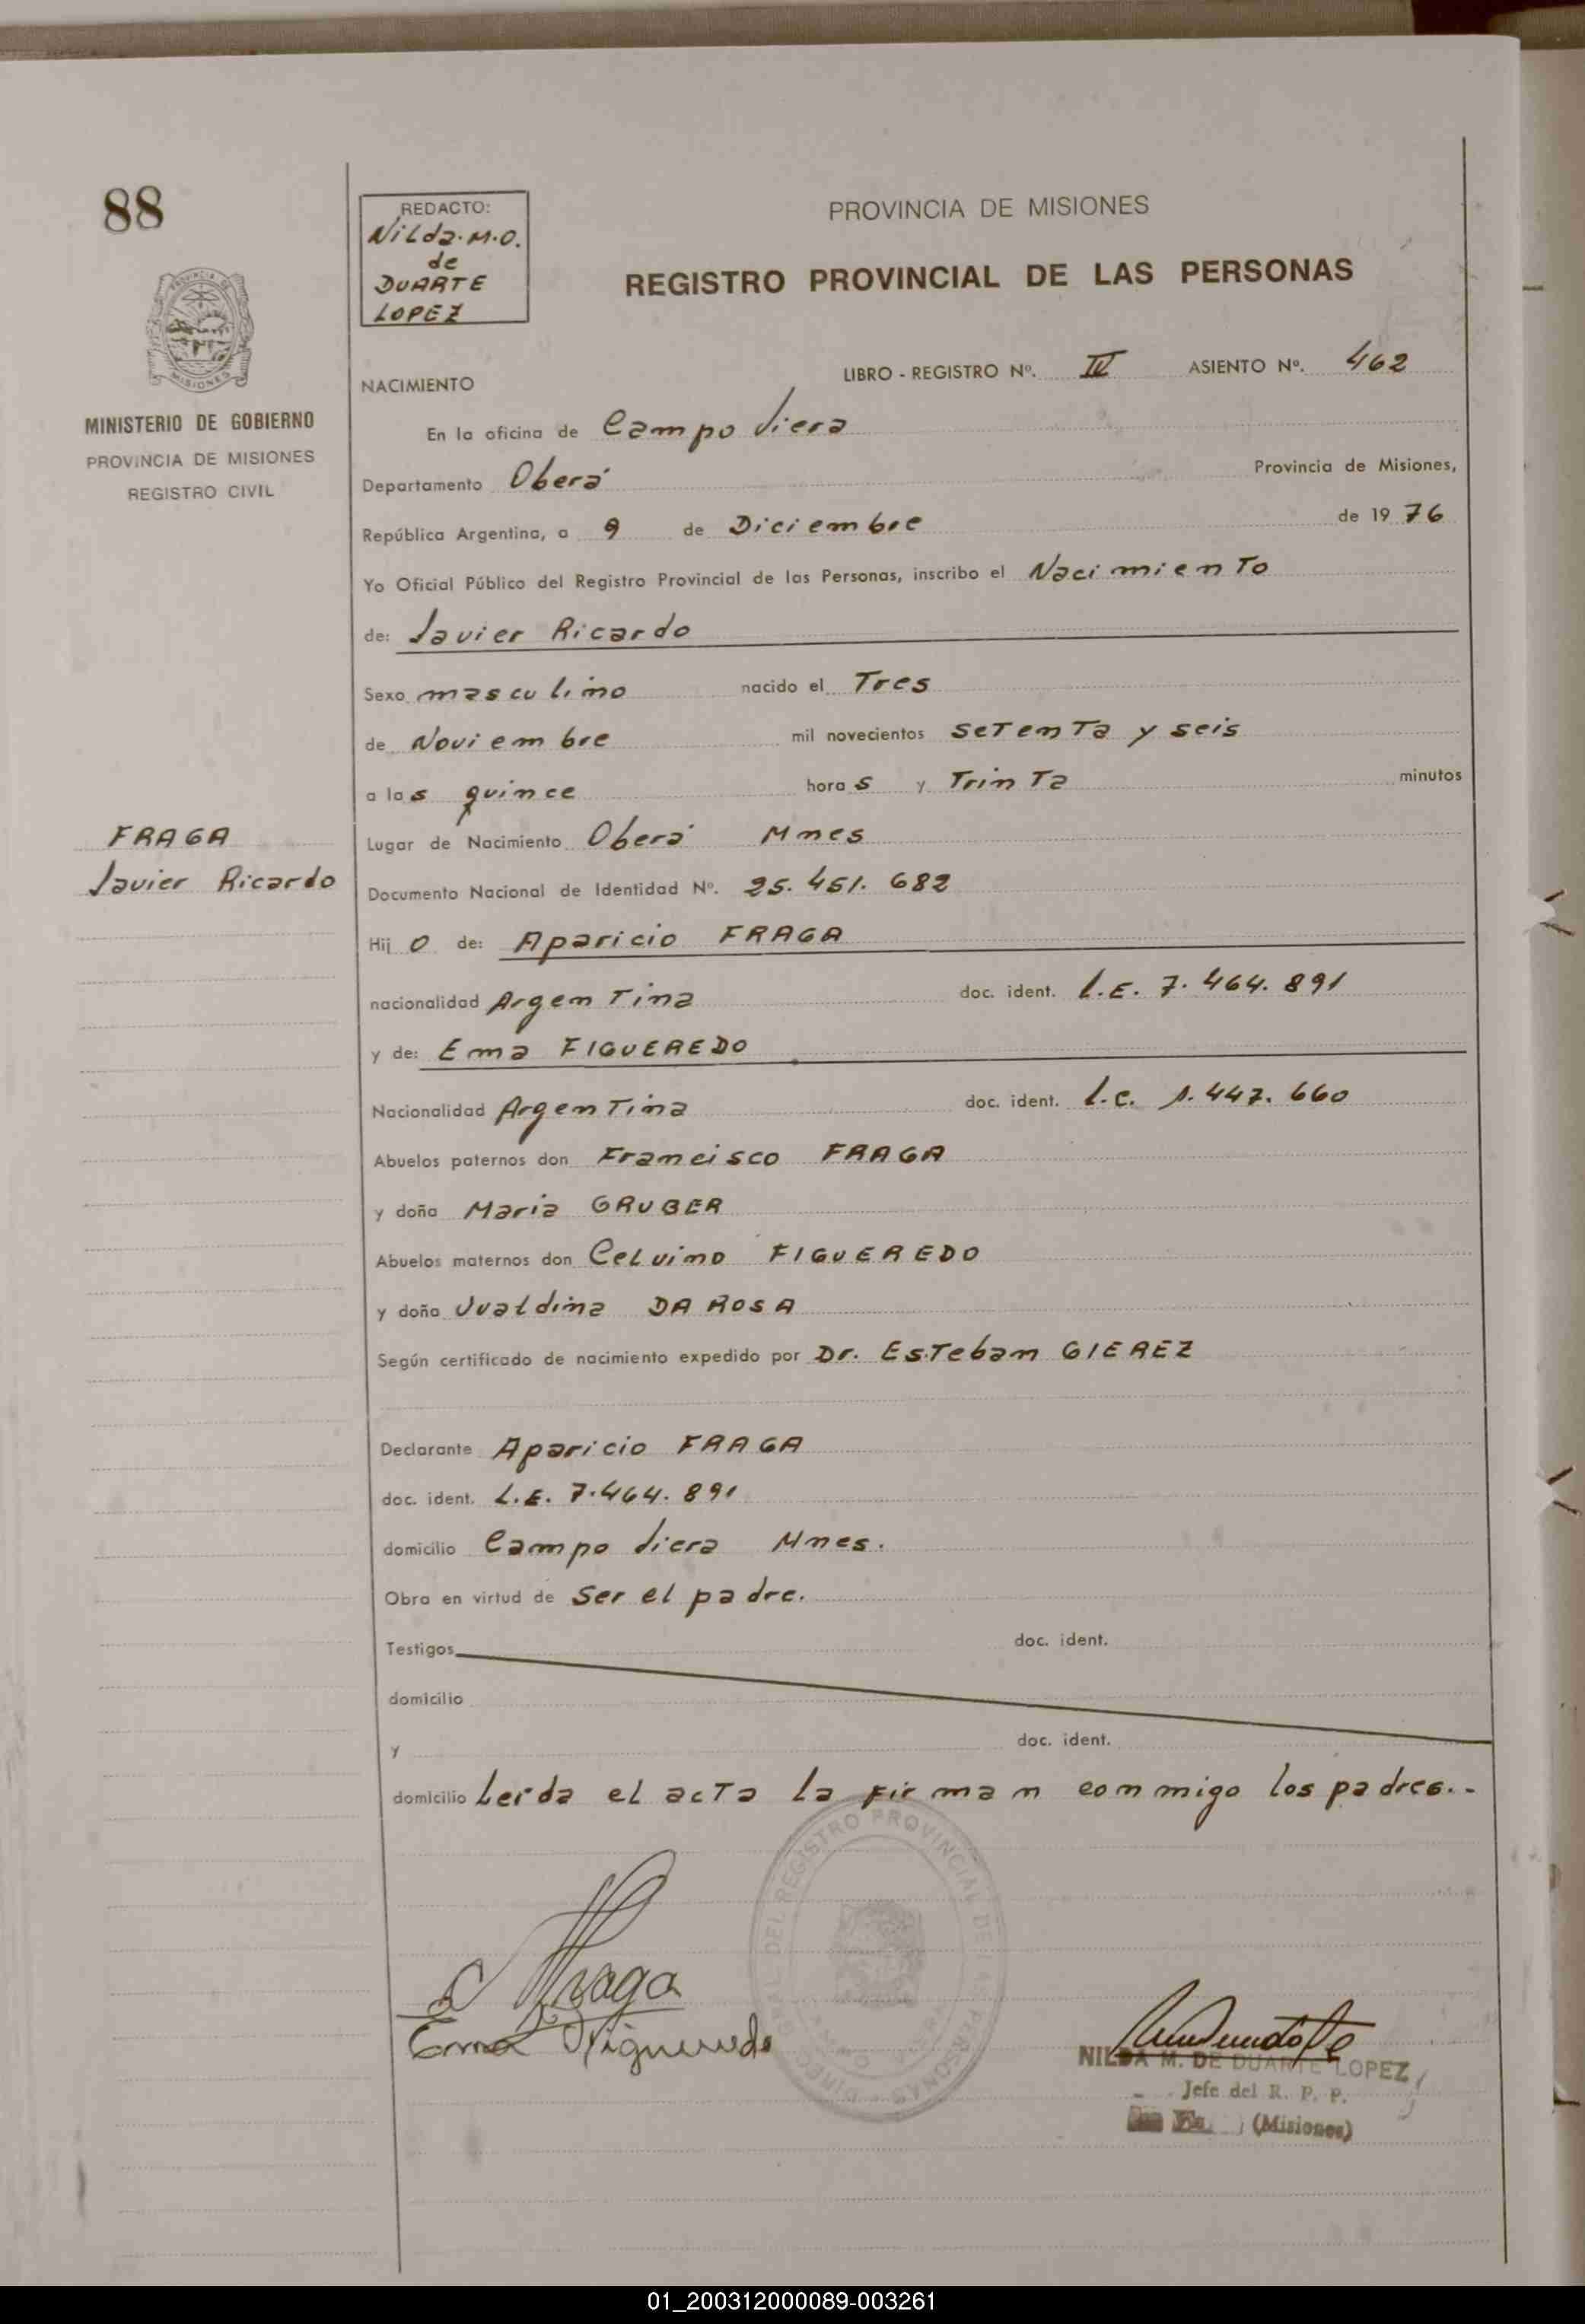 88
REDACTO:
Nilda.M.O.
de
DUARTE
LOPEZ
PROVINCIA DE MISIONES
REGISTRO PROVINCIAL DE LAS PERSONAS
PROVINCIA DE
MISIONES
MINISTERIO DE GOBIERNO
PROVINCIA DE MISIONES
REGISTRO CIVIL
LIBRO - REGISTRO Nº. IV ASIENTO Nº. 462
NACIMIENTO
En la oficina de Campo Viera
Departamento Oberá Provincia de Misiones,
República Argentina, a 9 de Diciembre de 1976
Yo Oficial Público del Registro Provincial de las Personas, inscribo el Nacimiento
de: Javier Ricardo
Sexo masculino nacido el Tres
de Noviembre mil novecientos SeTenTa y seis
a las quince horas y TrinTa minutos
FRAGA
Javier Ricardo
Lugar de Nacimiento Oberá Mnes
Documento Nacional de Identidad Nº. 25.451.682
Hijo de: Aparicio FRAGA
nacionalidad ArgenTina doc. ident. L.E. 7.464.891
y de: Ema FIGUEREDO
Nacionalidad ArgenTina doc. ident. L.C. 1.447.660
Abuelos paternos don Francisco FRAGA
y doña Maria GRUBER
Abuelos maternos don Celvino FIGUEREDO
y doña Jualdina DA ROSA
Según certificado de nacimiento expedido por Dr. EsTeban GIEREZ
Declarante Aparicio FRAGA
doc. ident. L.E. 7.464.891
domicilio Campo Viera Mnes.
Obra en virtud de ser el padre.
Testigos doc. ident.
domicilio
y doc. ident.
domicilio Leída el acTa la firman conmigo los padres.-
REGISTRO PROVINCIAL DE LAS PERSONAS
Fraga
Ema Figueredo
NILDA M. DE DUARTE LOPEZ
Jefe del R. P. P.
(Misiones)
01_200312000089-003261